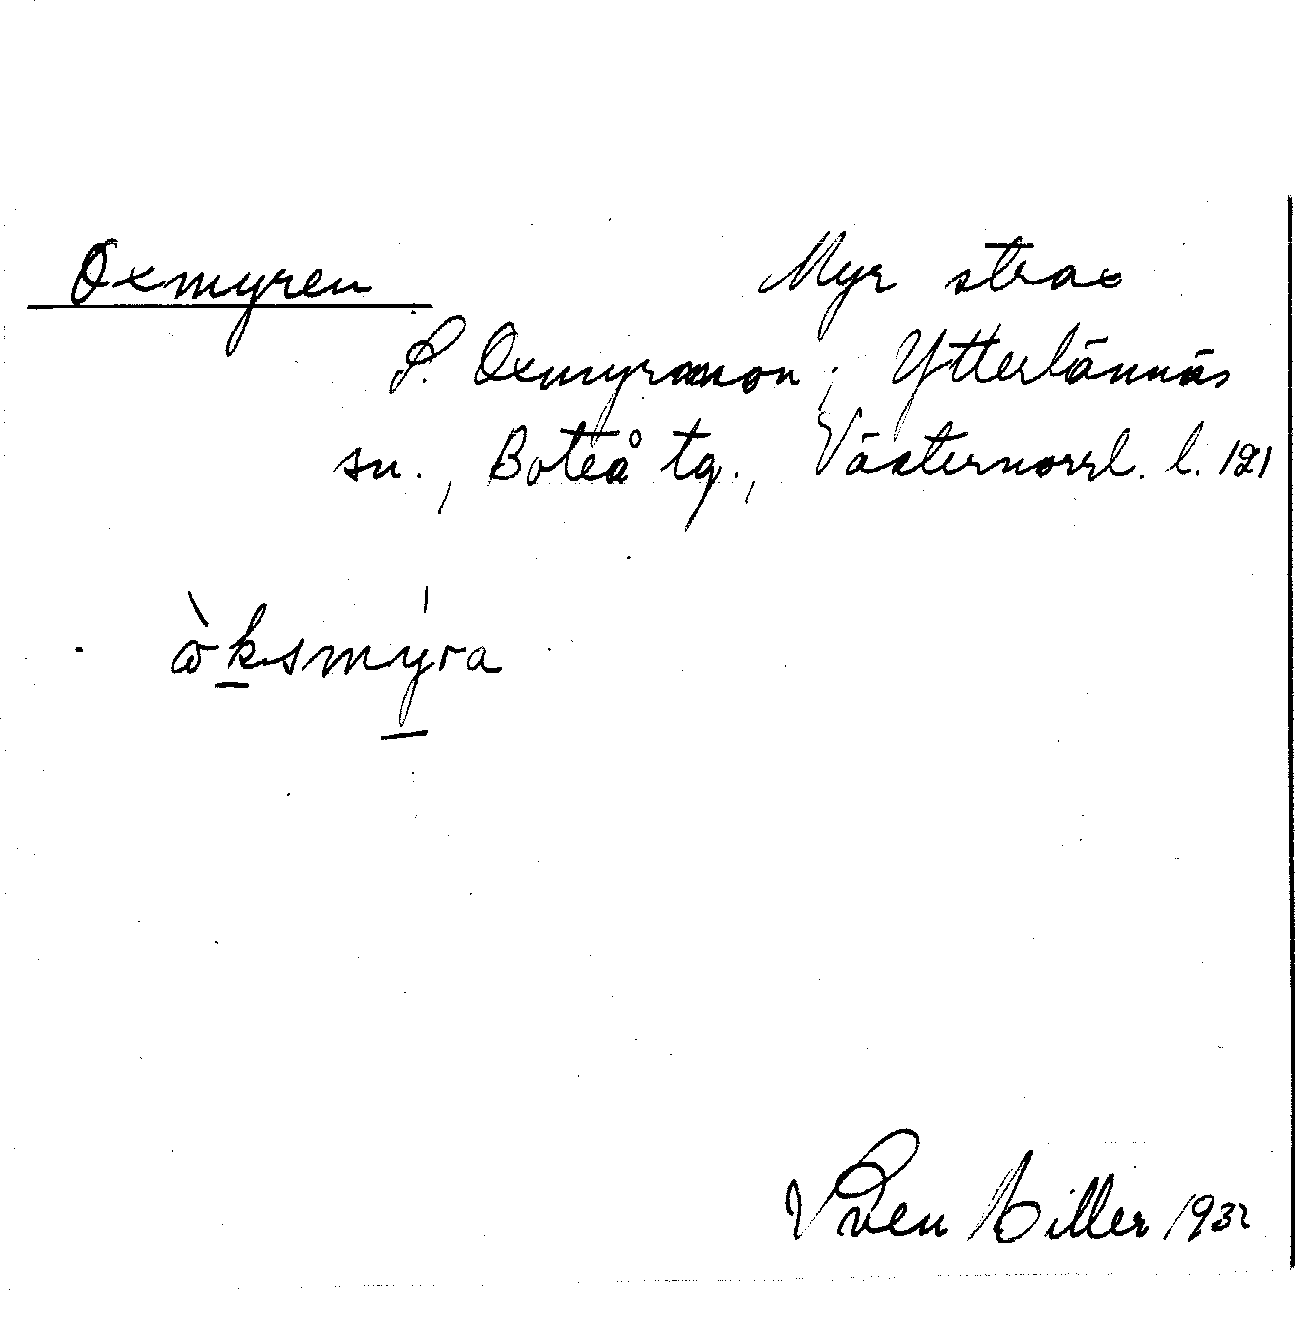 Oxmyren Myr strax
S. Oxmyromon, Ytterlännäs
sn., Boteå tg., Västernorrl. l. 121
òksmýra
Sven Hiller 1932